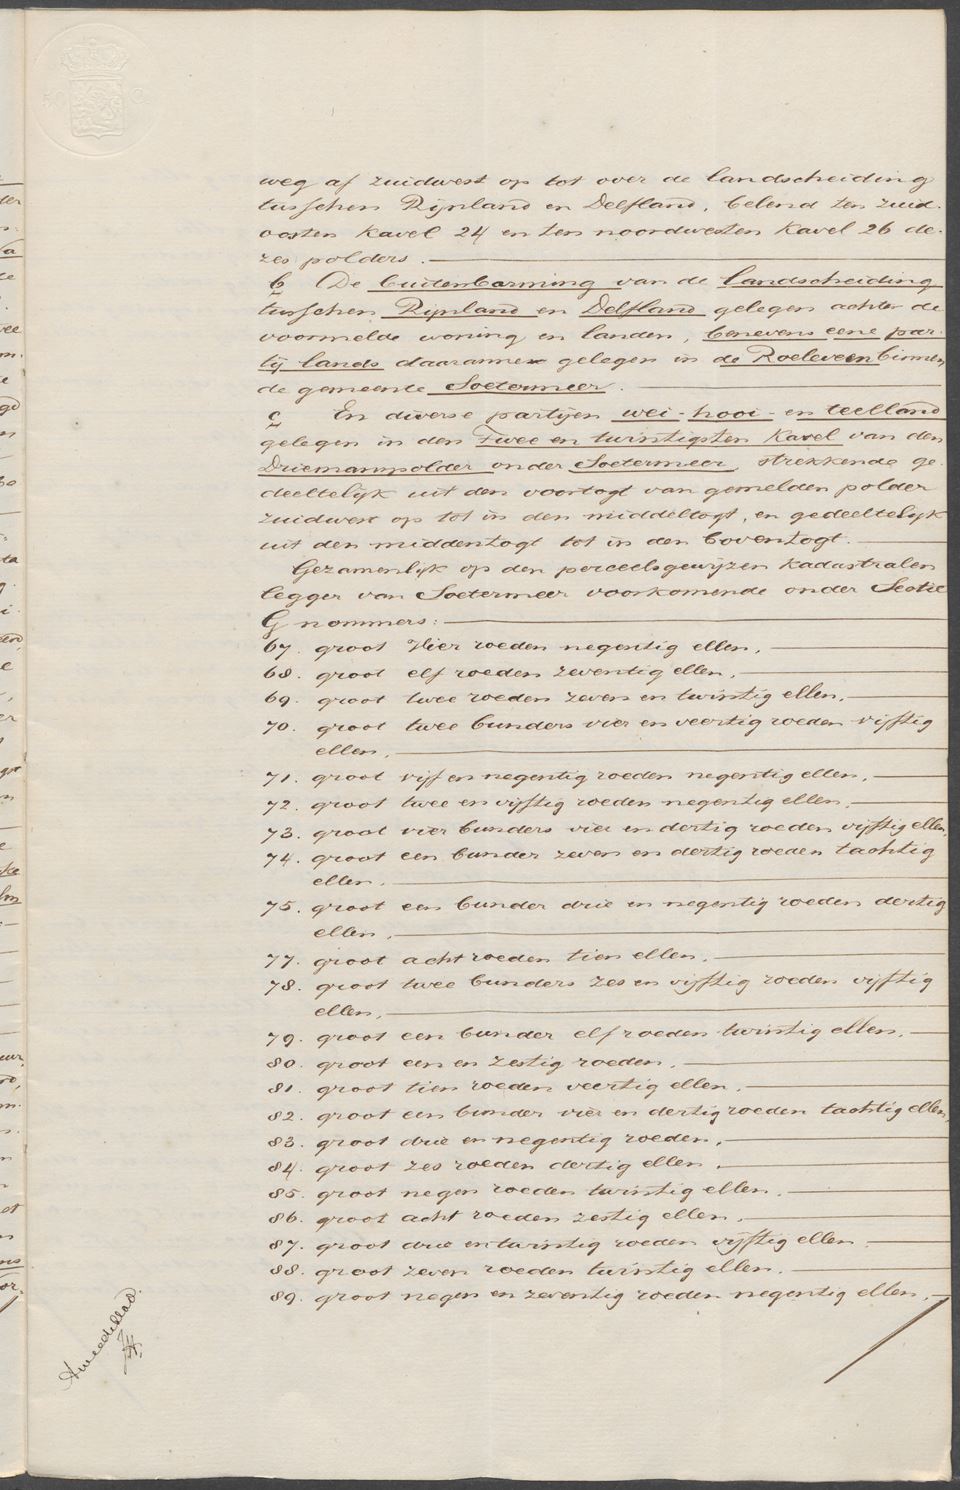 weg af zuidwest op tot over de landscheiding
tusschen Rijnland en Delfland, belend ten zuid-
oosten Kavel 24 en ten noordwesten Kavel 26 de-
zes polders.
b De buitenbarming van de landscheiding
tusschen Rijnland en Delfland gelegen achter de
voormelde woning en landen, benevens eene par-
tij lands daaraannex gelegen in de Roeleveen binnen
de gemeente Soetermeer.
c En diverse partijen wei- hooi- en teelland
gelegen in den Twee en twintigsten Kavel van den
Driemanspolder onder Soetermeer, strekkende ge-
deeltelijk uit den voortogt van gemelden polder
zuidwest op tot in den middeltogt, en gedeeltelijk
uit den middentogt tot in den boventogt.
Gezamenlijk op den perceelsgewijzen kadastralen
legger van Soetermeer voorkomende onder Sectie
G nommers:
67. groot Vier roeden negentig ellen,
68. groot elf roeden zeventig ellen,
69. groot twee roeden zeven en twintig ellen,
70. groot twee bunders vier en veertig roeden vijftig
ellen,
71. groot vijf en negentig roeden negentig ellen,
72. groot twee en vijftig roeden negentig ellen,
73. groot vier bunders vier en dertig roeden vijftig ellen,
74. groot een bunder zeven en dertig roeden tachtig
ellen,
75. groot een bunder drie en negentig roeden dertig
ellen,
77. groot acht roeden tien ellen,
78. groot twee bunders zes en vijftig roeden vijftig
ellen,
79. groot een bunder elf roeden twintig ellen,
80. groot een en zestig roeden,
81. groot tien roeden veertig ellen,
82. groot een bunder vier en dertig roeden tachtig ellen,
83. groot drie en negentig roeden,
84. groot zes roeden dertig ellen,
85. groot negen roeden twintig ellen,
86. groot acht roeden zestig ellen,
87. groot drie en twintig roeden vijftig ellen
88. groot zeven roeden twintig ellen,
89. groot negen en zeventig roeden negentig ellen,
tweede blad.